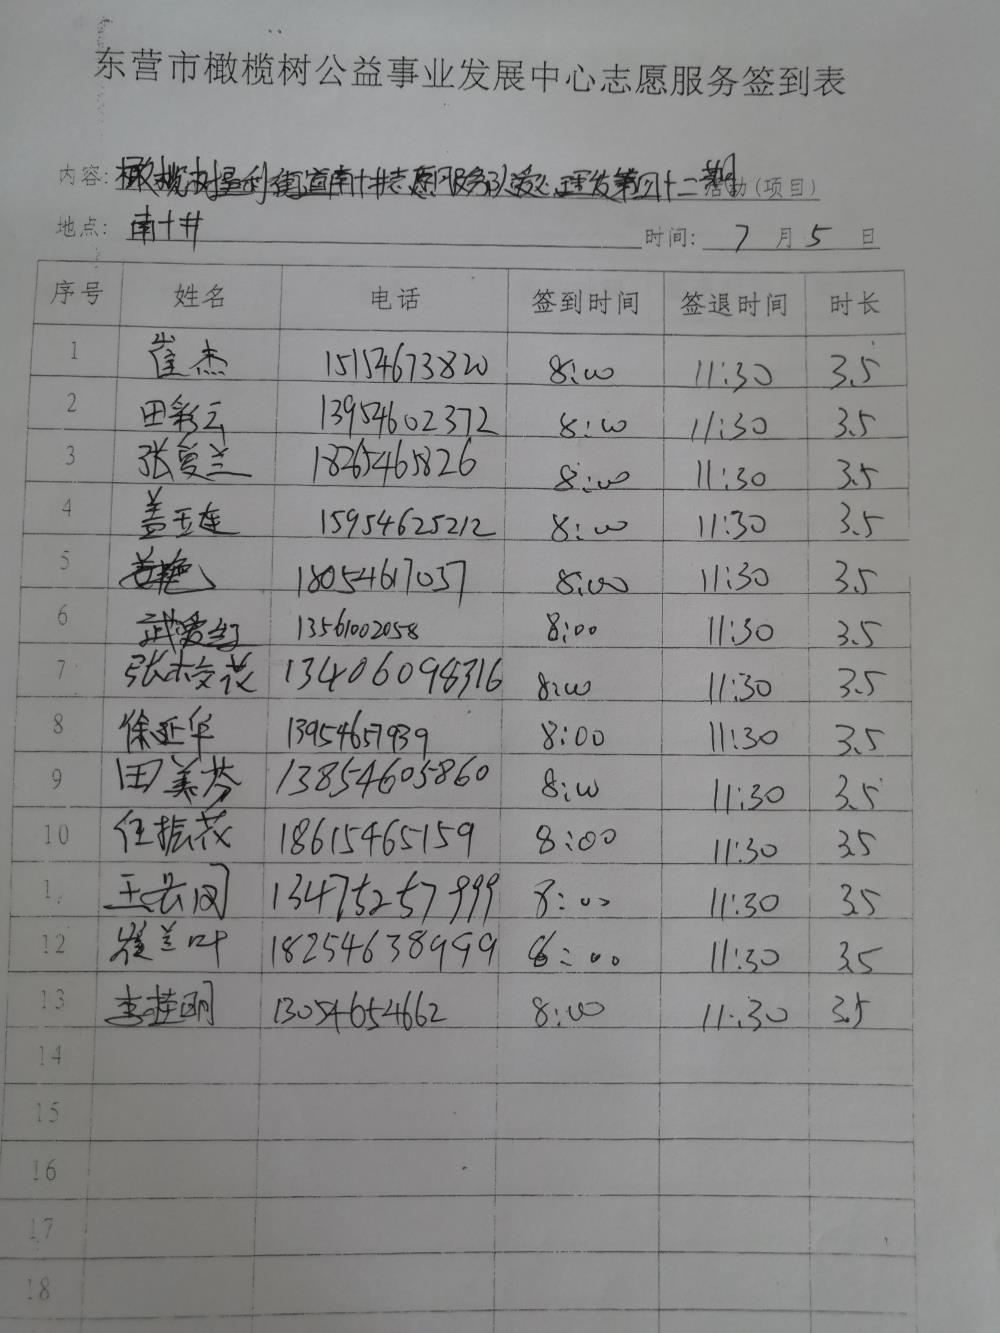 东营市橄榄树公益事业发展中心志愿服务签到表
内容: 橄榄树垦利街道南十井志愿服务队爱心理发第四十二期活动(项目)
地点: 南十井 时间: 7 月 5 日
序号 姓名 电话 签到时间 签退时间 时长
1 崔杰 15154673820 8:00 11:30 3.5
2 田彩云 13954602372 8:00 11:30 3.5
3 张爱兰 18265465826 8:00 11:30 3.5
4 盖玉连 15954625212 8:00 11:30 3.5
5 18054617037 8:00 11:30 3.5
6 武爱红 13561002058 8:00 11:30 3.5
7 张校花 13406098316 8:00 11:30 3.5
8 徐延华 13954657939 8:00 11:30 3.5
9 田美芬 13854605860 8:00 11:30 3.5
10 任振花 18615465159 8:00 11:30 3.5
1 13475257999 8:00 11:30 3.5
12 崔兰叶 18254638999 8:00 11:30 3.5
13 李桂明 13054654662 8:00 11:30 3.5
14
15
16
17
18